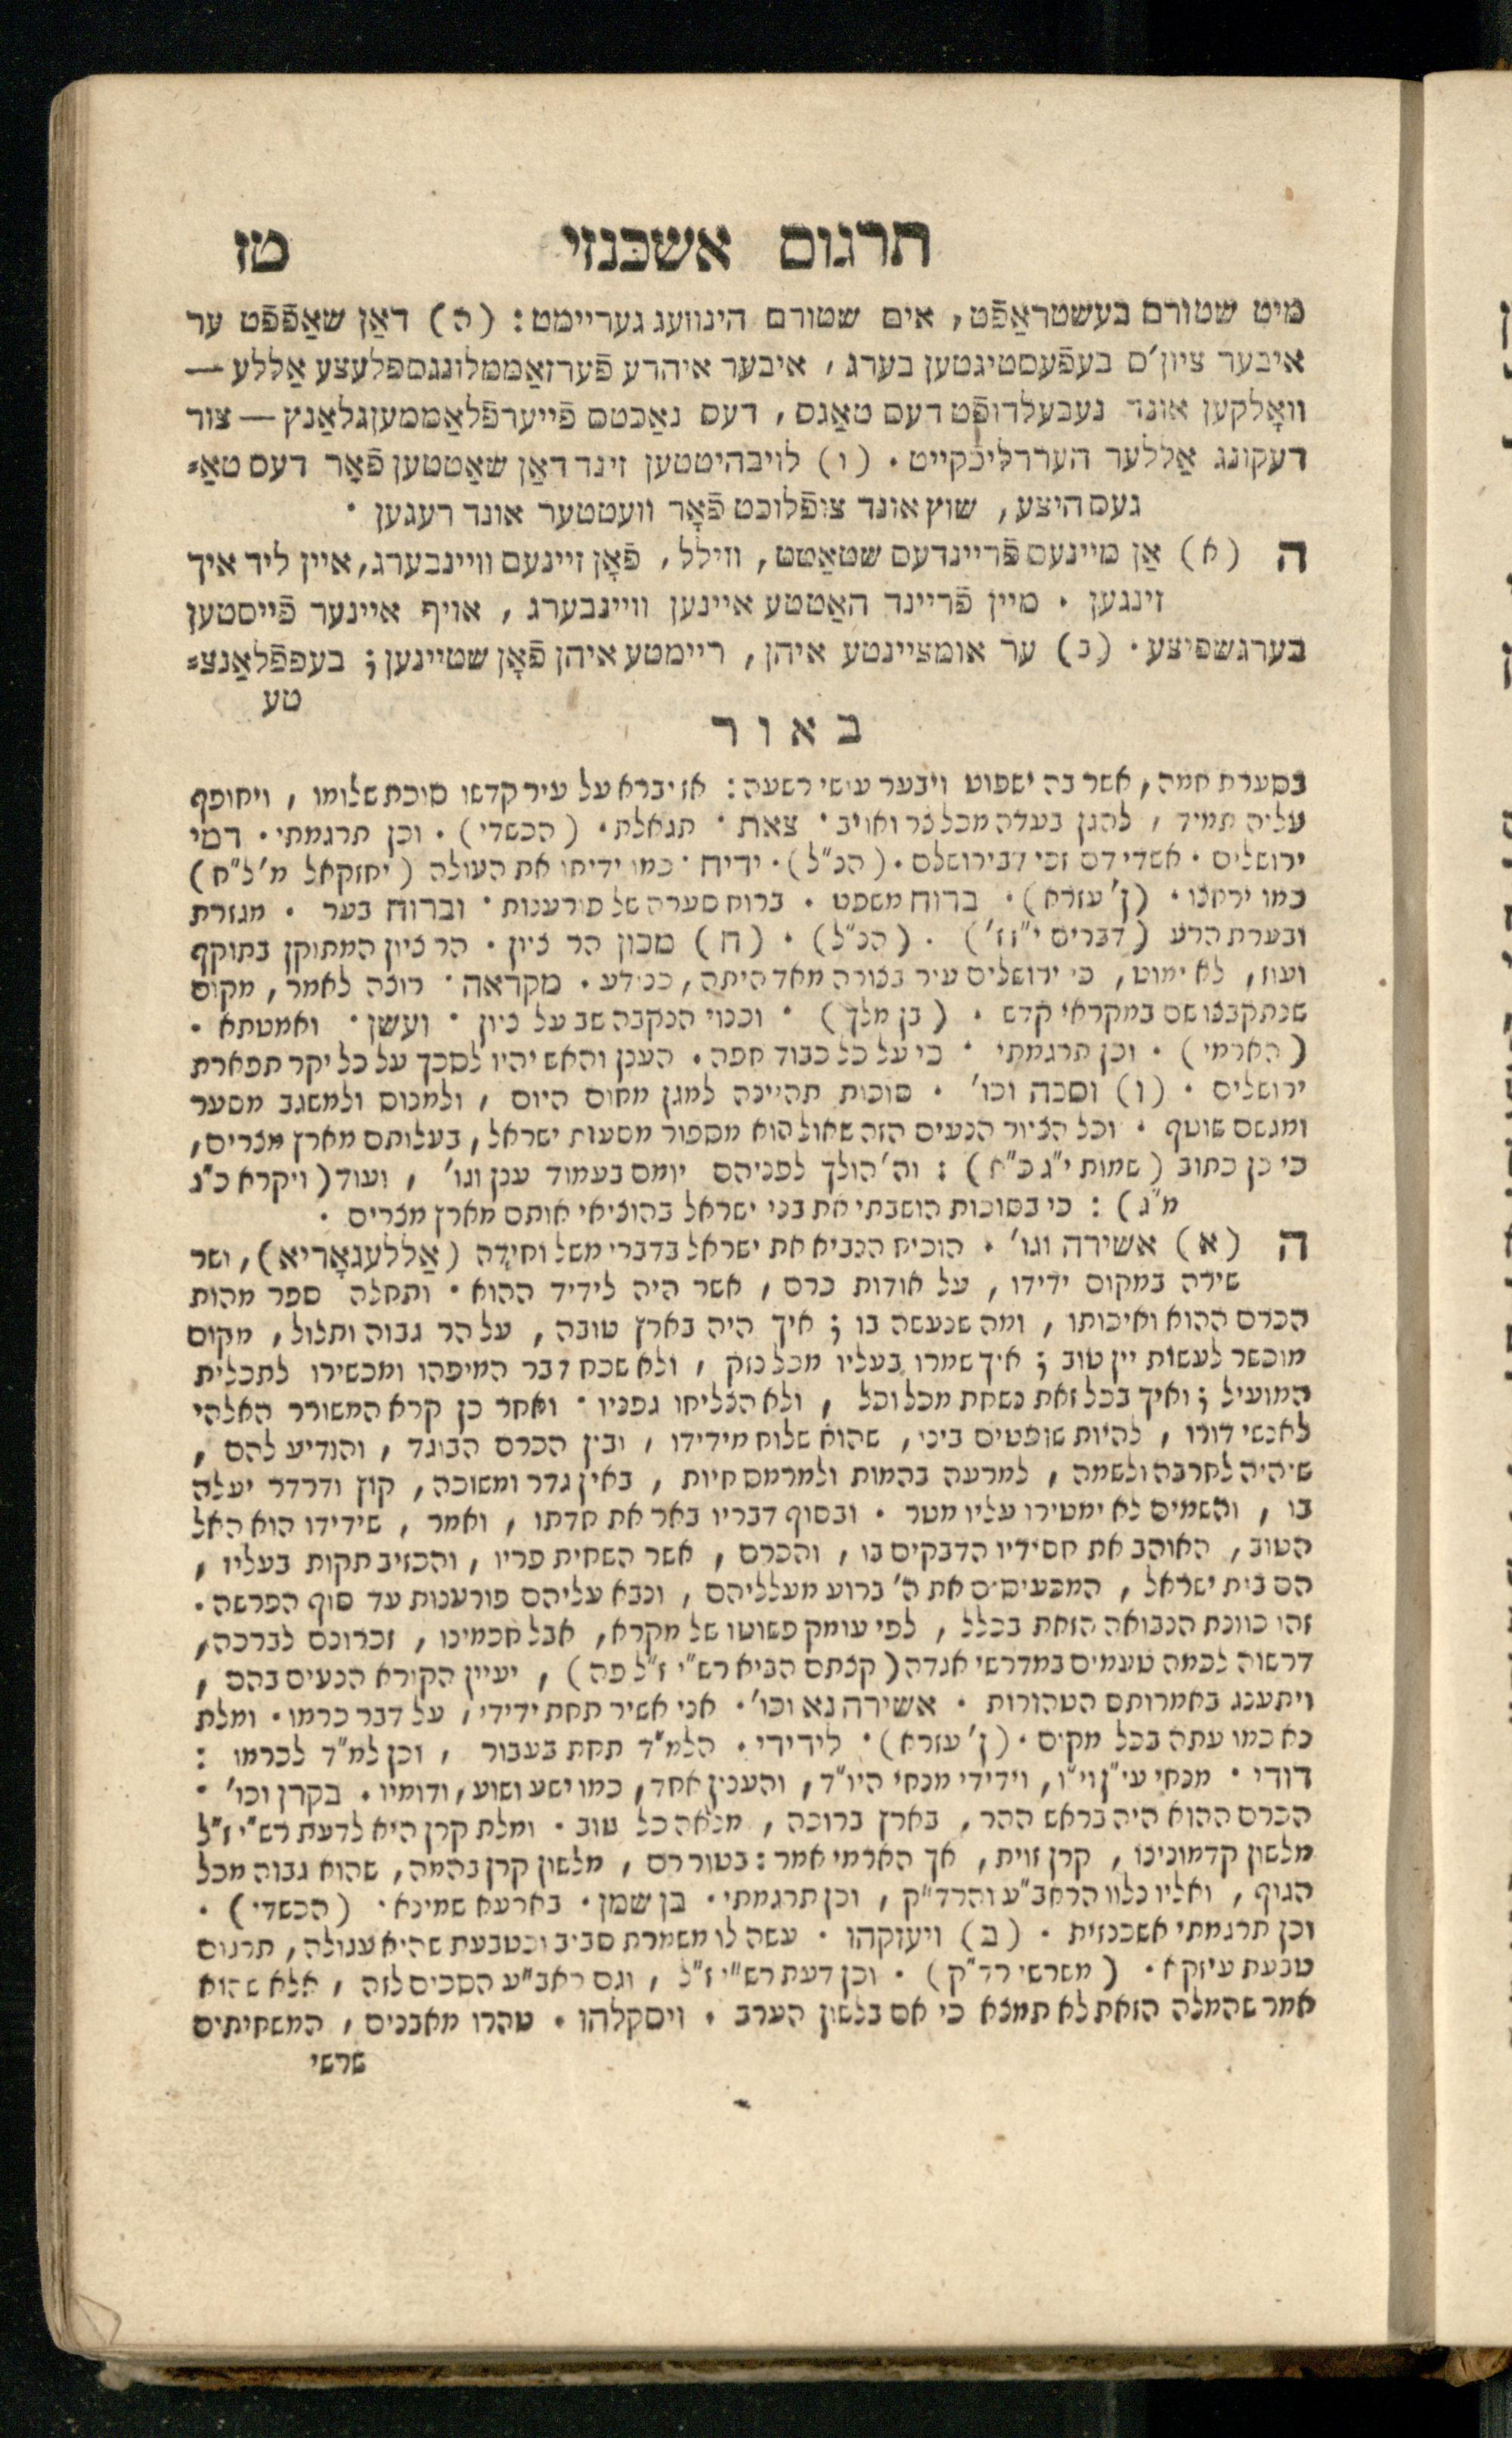 תרגום אשכנזי טז
מיט שטורם בעשטראַפֿט, אים שטורם הינוועג געריימט: (ה) דאַן שאַפֿפֿט ער
איבער ציון'ס בעפֿעסטיגטען בערג, איבער איהרע פֿערזאַממלונגספלעצע אַללע —
וואָלקען אונד נעבעלדופֿט דעס טאַגס, דעס נאַכטס פֿייערפֿלאַממענגלאַנץ — צור
דעקונג אַללער העררליכֿקייט. (ו) לויבהיטטען זינד דאַן שאַטטען פֿאָר דעס טאַ⸗
געס היצע, שוץ אונד צופֿלוכט פֿאָר וועטטער אונד רעגען.
ה (א) אַן מיינעס פֿריינדעס שטאַטט, וויללל, פֿאָן זיינעם וויינבערג, איין ליד איך
זינגען. מיין פֿריינד האַטטע איינען וויינבערג, אויף איינער פֿייסטען
בערגשפיצע. (ב) ער אומציינטע איהן, ריימטע איהן פֿאָן שטיינען; בעפפֿלאַנצ⸗
טע
באור
בסערת חמה, אשר בה ישפוט ויבער עושי רשעה: אז יברא על עיר קדשו סוכת שלומו, ויחופף
עליה תמיד, להגן בעדה מכל צר ואויב. צאת. תגאלת. (הכשדי). וכן תרגמתי. דמי
ירושלים. אשדי דם זכי דבירושלם. (הנ"ל). ידיח. כמו ידיחו את העולה (יחזקאל מ' ל"ח)
כמו ירחצו. (ן' עזרא). ברוח משפט. ברוח סערה של פורענות. וברוח בער. מגזרת
ובערת הרע (דברים י"ז ז'). (הנ"ל). (ה) מכון הר ציון. הר ציון המתוקן בתוקף
ועוז, לא ימוט, כי ירושלים עיר בצורה מאד היתה, כנודע. מקראה. רוצה לאמר, מקום
שנתקבצו שם במקראי קדש. (בן מלך). וכנוי הנקבה שב על ציון. ועשן. ואמטתא.
(הארמי). וכן תרגמתי. כי על כל כבוד חפה. הענן והאש יהיו לסכך על כל יקר תפארת
ירושלים. (ו) וסכה וכו'. סוכות תהיינה למגן מחום היום, ולמנוס ולמשגב מסער
ומגשם שוטף. וכל הציור הנעים הזה שאול הוא מספור מסעות ישראל, בעלותם מארץ מצרים,
כי כן כתוב (שמות י"ג כ"א): וה' הולך לפניהם יומם בעמוד ענן וגו', ועוד (ויקרא כ"ג
מ"ג): כי בסוכות הושבתי את בני ישראל בהוציאי אותם מארץ מצרים.
ה (א) אשירה וגו'. הוכיח הנביא את ישראל בדברי משל וחידה (אַללעגאָריא), ושר
שירה במקום ידידו, על אודות כרם, אשר היה לידיד ההוא. ותחלה ספר מהות
הכרם ההוא ואיכותו, ומה שנעשה בו; איך היה בארץ טובה, על הר גבוה ותלול, מקום
מוכשר לעשות יין טוב; איך שמרו בעליו מכל נזק, ולא שכח דבר המיפהו ומכשירו לתכלית
המועיל; ואיך בכל זאת נשחת מכל וכל, ולא הצליחו גפניו. ואחר כן קרא המשורר האלהי
לאנשי דורו, להיות שופטים בינו, שהוא שלוח מידידו, ובין הכרם הבוגד, והודיע להם,
שיהיה לחרבה ולשמה, למרעה בהמות ולמרמס חיות, באין גדר ומשוכה, קוץ ודרדר יעלה
בו, והשמים לא ימטירו עליו מטר. ובסוף דבריו באר את חדתו, ואמר, שידידו הוא האל
הטוב, האוהב את חסידיו הדבקים בו, והכרם, אשר השחית פריו, והכזיב תקות בעליו,
הם בית ישראל, המכעיסים את ה' ברוע מעלליהם, ונבא עליהם פורענות עד סוף הפרשה.
זהו כוונת הנבואה הזאת בכלל, לפי עומק פשוטו של מקרא, אבל חכמינו, זכרונם לברכה,
דרשוה לכמה טעמים במדרשי אגדה (קצתם הביא רש"י ז"ל פה), יעיין הקורא הנעים בהם,
ויתענג באמרותם הטהורות. אשירה נא וכו'. אני אשיר תחת ידידי, על דבר כרמו. ומלת
נא כמו עתה בכל מקום. (ן' עזרא). לידידי. הלמ"ד תחת בעבור, וכן למ"ד לכרמו:
דודי. מנחי עי"ן וי"ו, וידידי מנחי היו"ד, והענין אחד, כמו ישע ושוע, ודומיו. בקרן וכו'.
הכרם ההוא היה בראש ההר, בארץ ברוכה, מלאה כל טוב. ומלת קרן היא לדעת רש"י ז"ל
מלשון קדמונינו, קרן זוית, אך הארמי אמר: בטור רם, מלשון קרן בהמה, שהוא גבוה מכל
הגוף, ואליו נלוו הראב"ע והרד"ק, וכן תרגמתי. בן שמן. בארעא שמינא. (הכשדי).
וכן תרגמתי אשכנזית. (ב) ויעזקהו. עשה לו משמרת סביב וכטבעת שהיא עגולה, תרגום
טבעת עיזקא. (משרשי רד"ק). וכן דעת רש"י ז"ל, וגם ראב"ע הסכים לזה, אלא שהוא
אמר שהמלה הזאת לא תמצא כי אם בלשון הערב. ויסקלהו. טהרו מאבנים, המשחיתים
שרשי